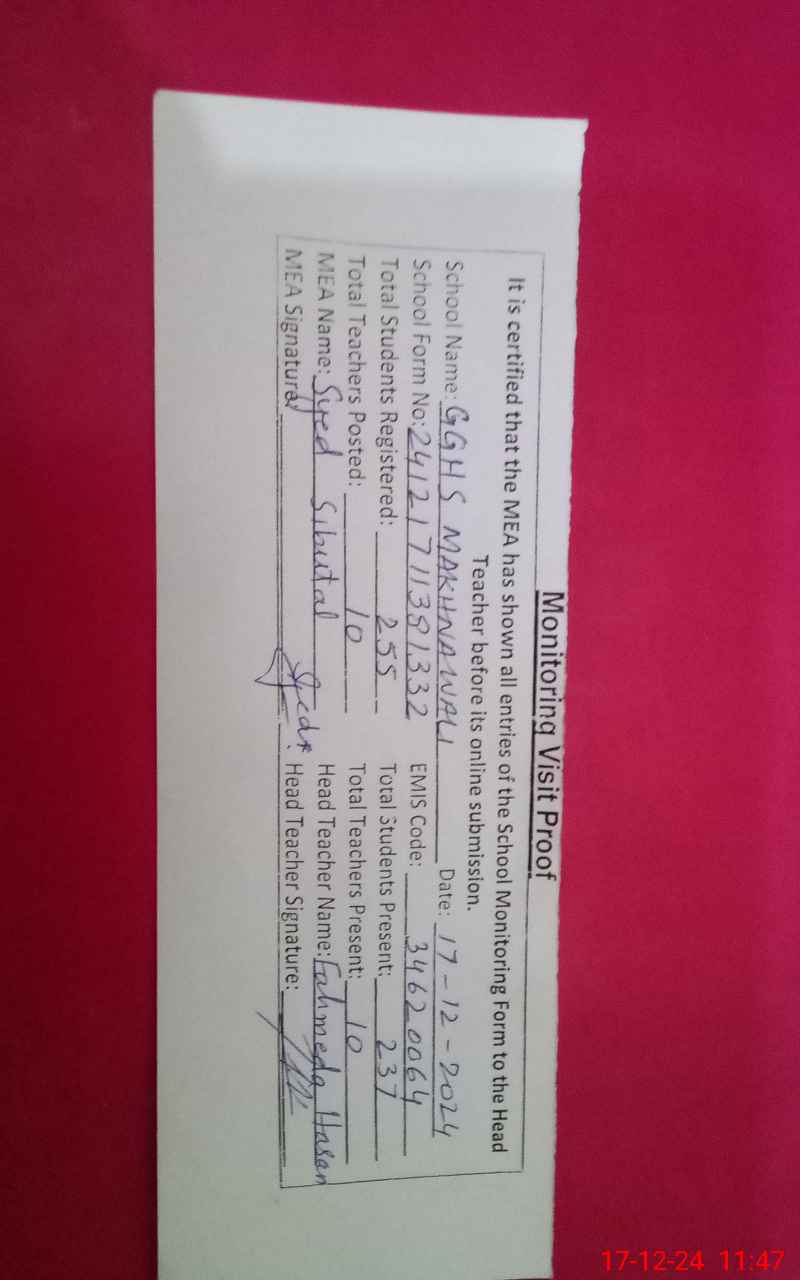 Monitoring Visit Proof
It is certified that the MEA has shown all entries of the School Monitoring Form to the Head
Teacher before its online submission.
School Name: GGHS MAKHNAWALI Date: 17-12-2024
School Form No: 24121711381332 EMIS Code: 34620064
Total Students Registered: 255 Total Students Present: 237
Total Teachers Posted: 10 Total Teachers Present: 10
MEA Name: Syed Sibutal Head Teacher Name: Fahmeda Hasan
MEA Signature: Head Teacher Signature:
17-12-24 11:47